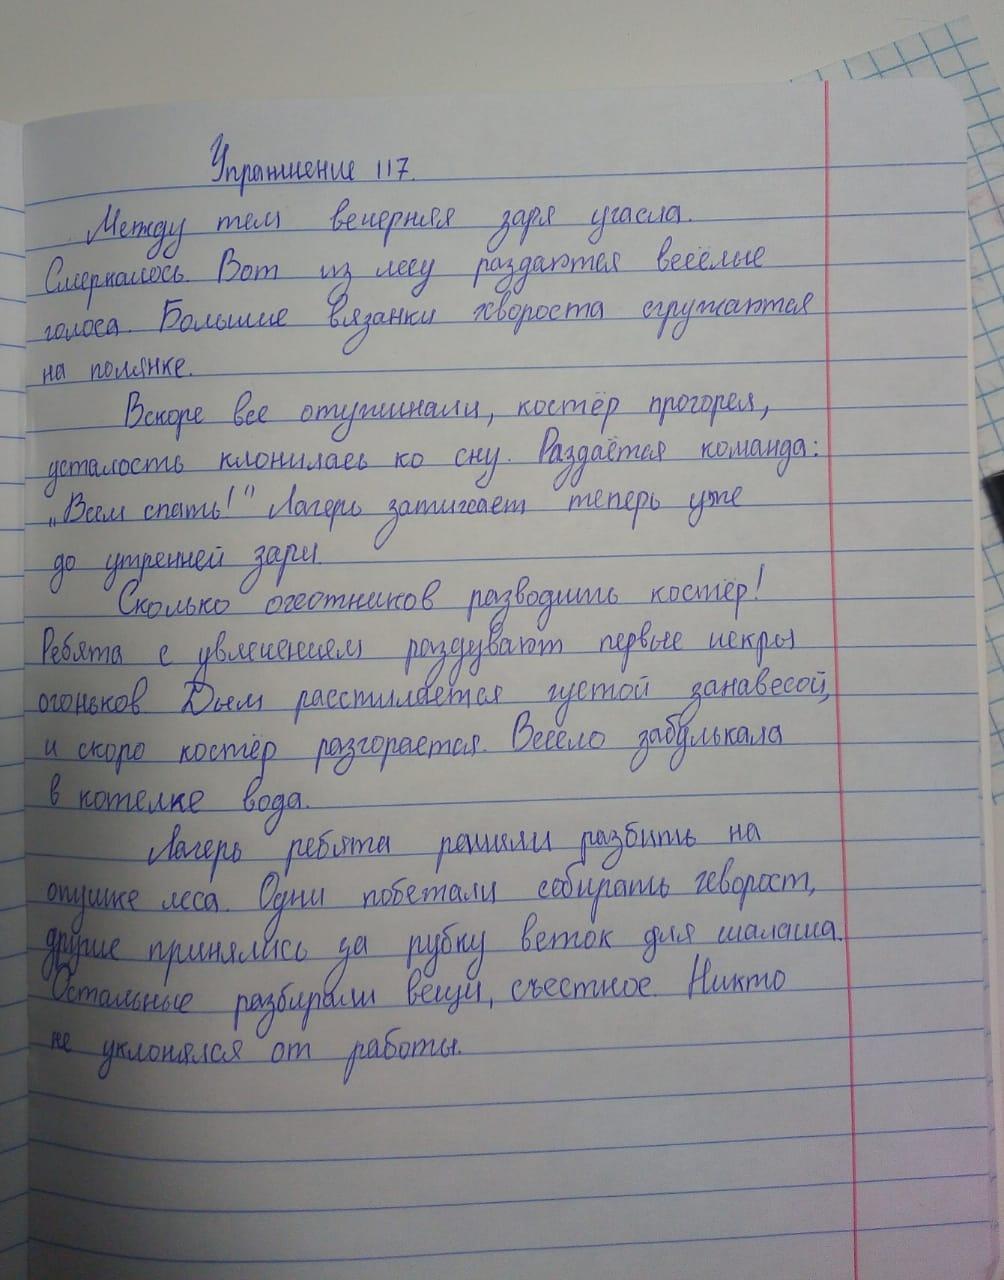 Упражнение 117.
Между тем вечерняя заря угасла.
Смеркалось. Вот из лесу раздаются весёлые
голоса. Большие вязанки хвороста сгружаются
на полянке.
Вскоре все отужинали, костёр прогорел,
усталость клонилась ко сну. Раздаётся команда:
„Всем спать!" Лагерь затихает теперь уже
до утренней зари.
Сколько охотников разводить костёр!
Ребята с увлечением раздувают первые искры
огоньков. Дым расстилается густой занавесой,
и скоро костёр разгорается. Весело забулькала
в котелке вода.
Лагерь ребята решили разбить на
опушке леса. Одни побежали собирать хворост,
другие принялись за рубку веток для шалаша.
Остальные разбирали вещи, съестное. Никто
не уклонялся от работы.